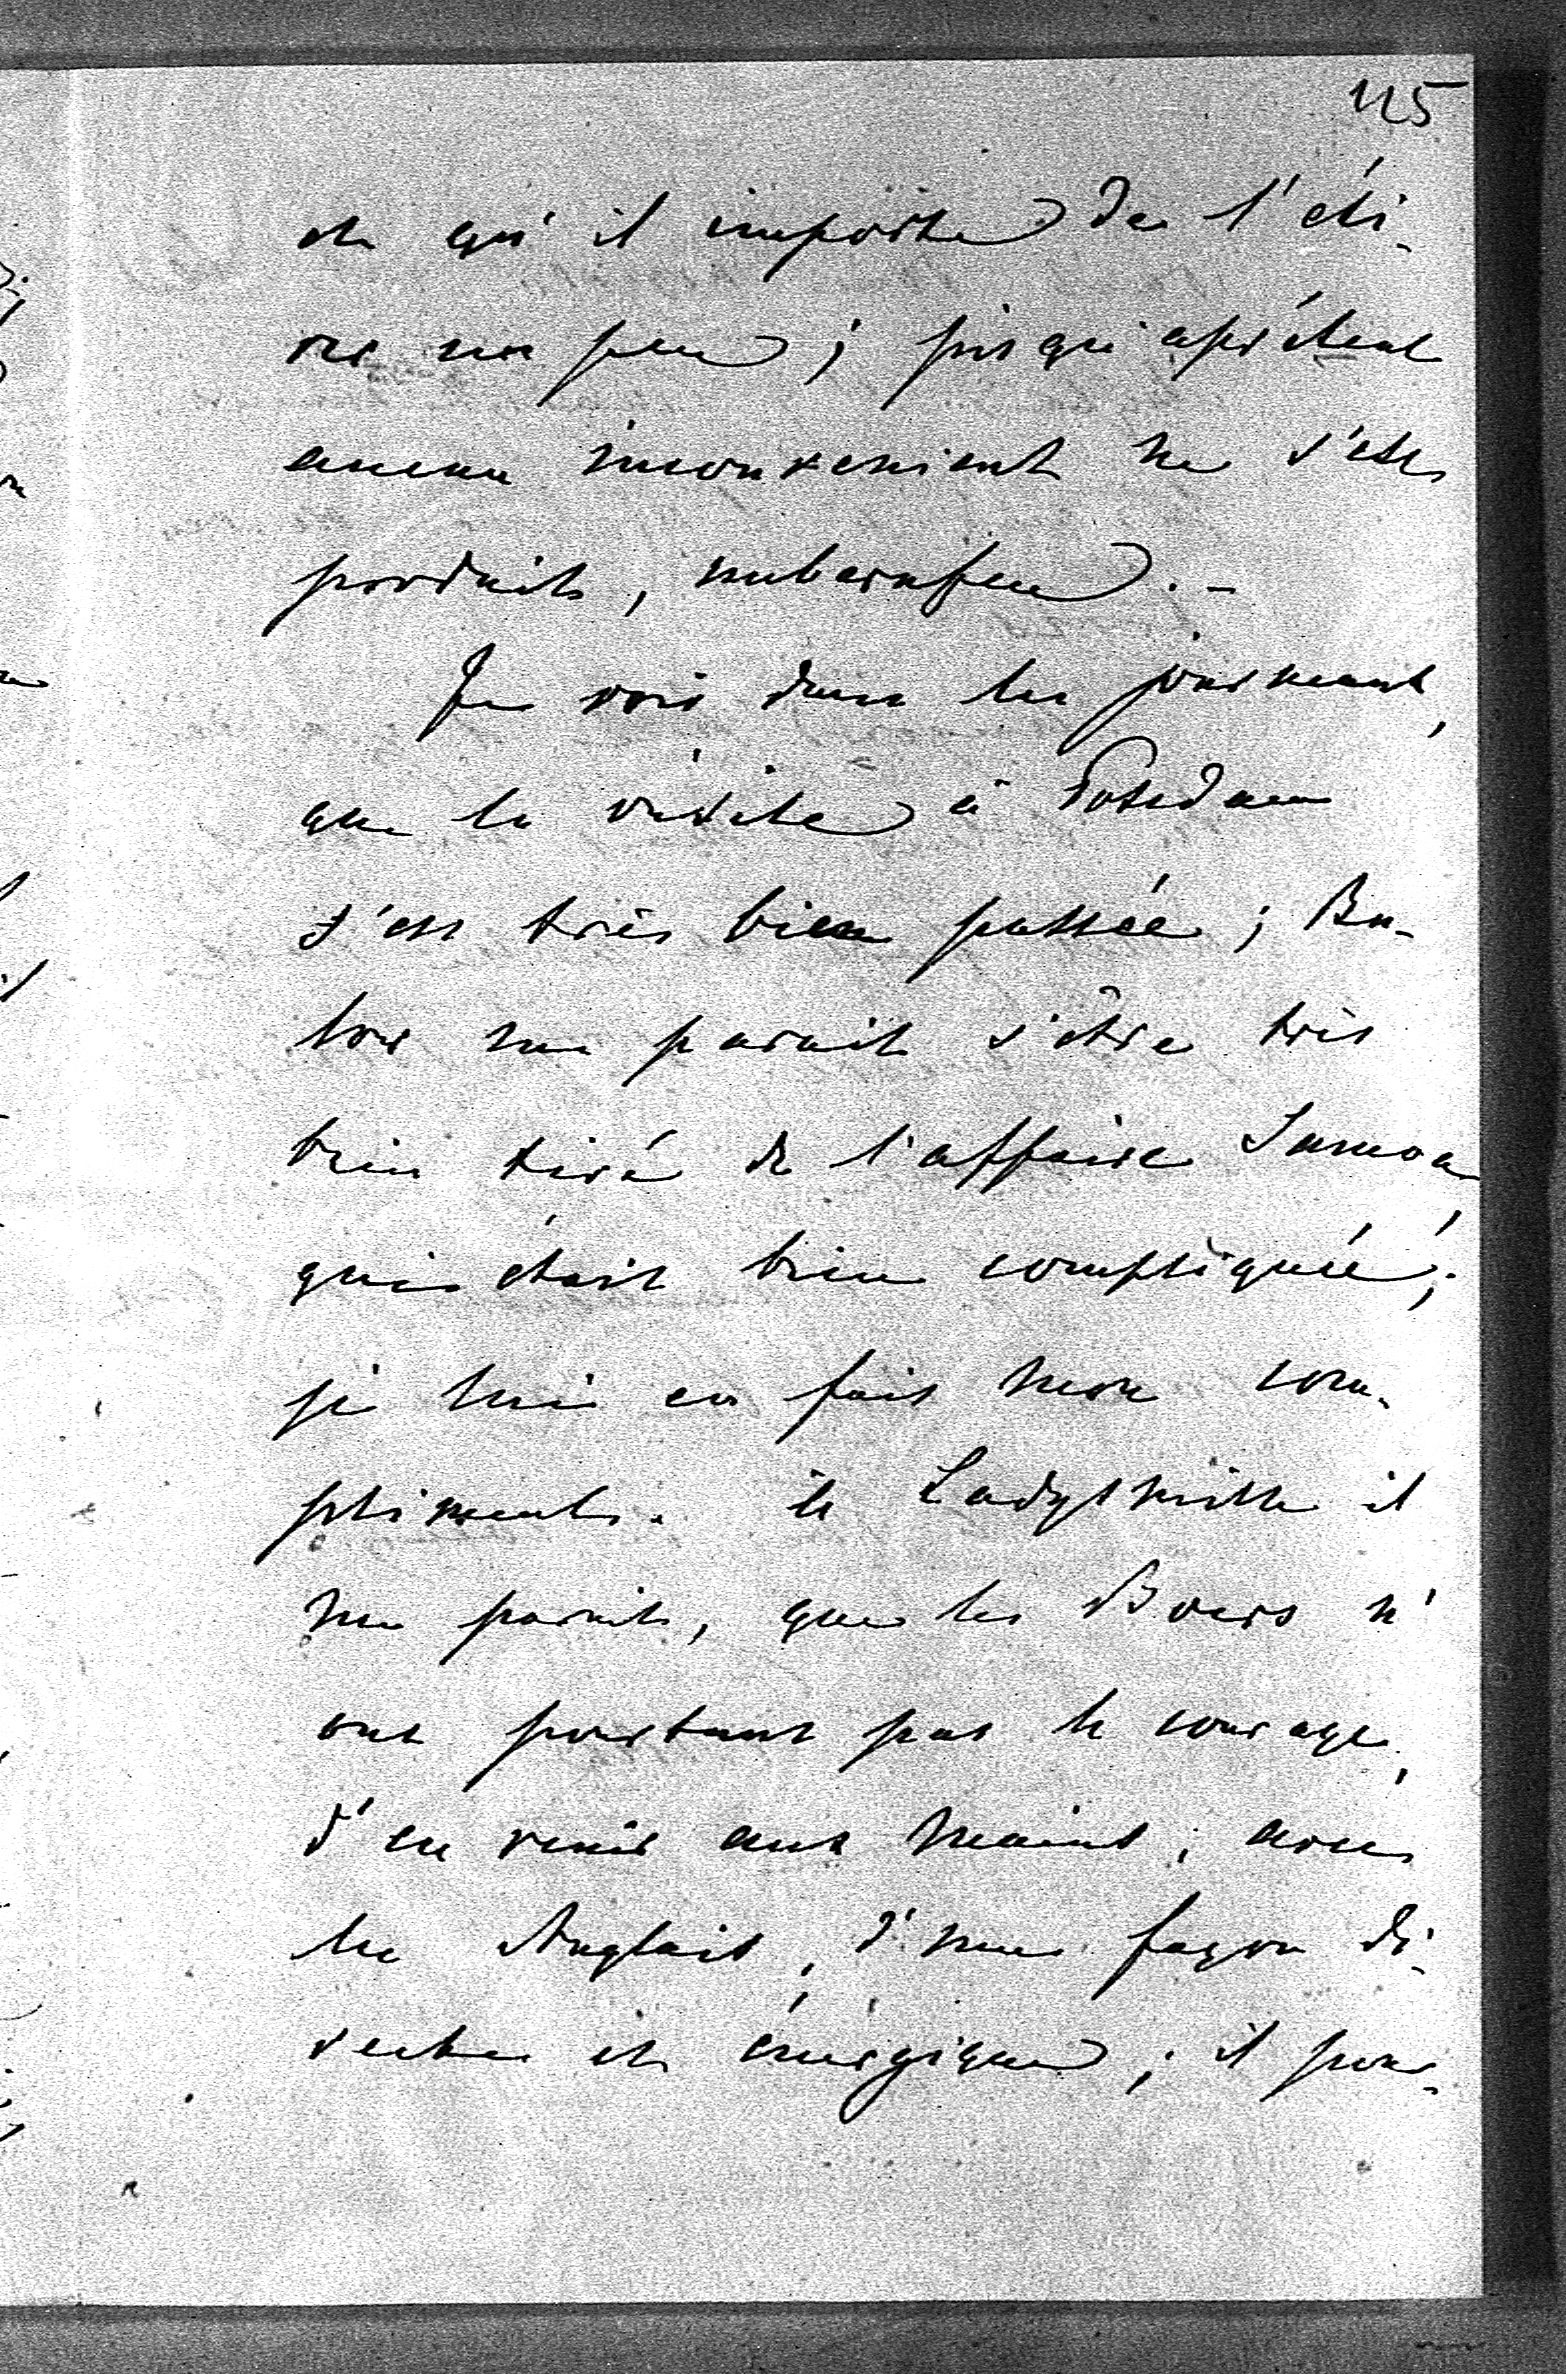 115
et qu'il importe de l'éti-
rer un peu; jusqu'à présent
aucun inconvenient ne s'est
produit, unberufen. -
Je vois dans les journaux,
que la visite à Potsdam
s'est très bien passée; Bu-
low me parait s'être très
bien tiré de l'affaire Samoa,
qui était bien compliquée;
je lui en fais mon com-
pliments. à Ladysmith il
me parait, que les Boers n'
ont pourtant pas le courage,
d'en venir aux mains, avec
les Anglais, d'une façon di-
recte et énergique; il pour-